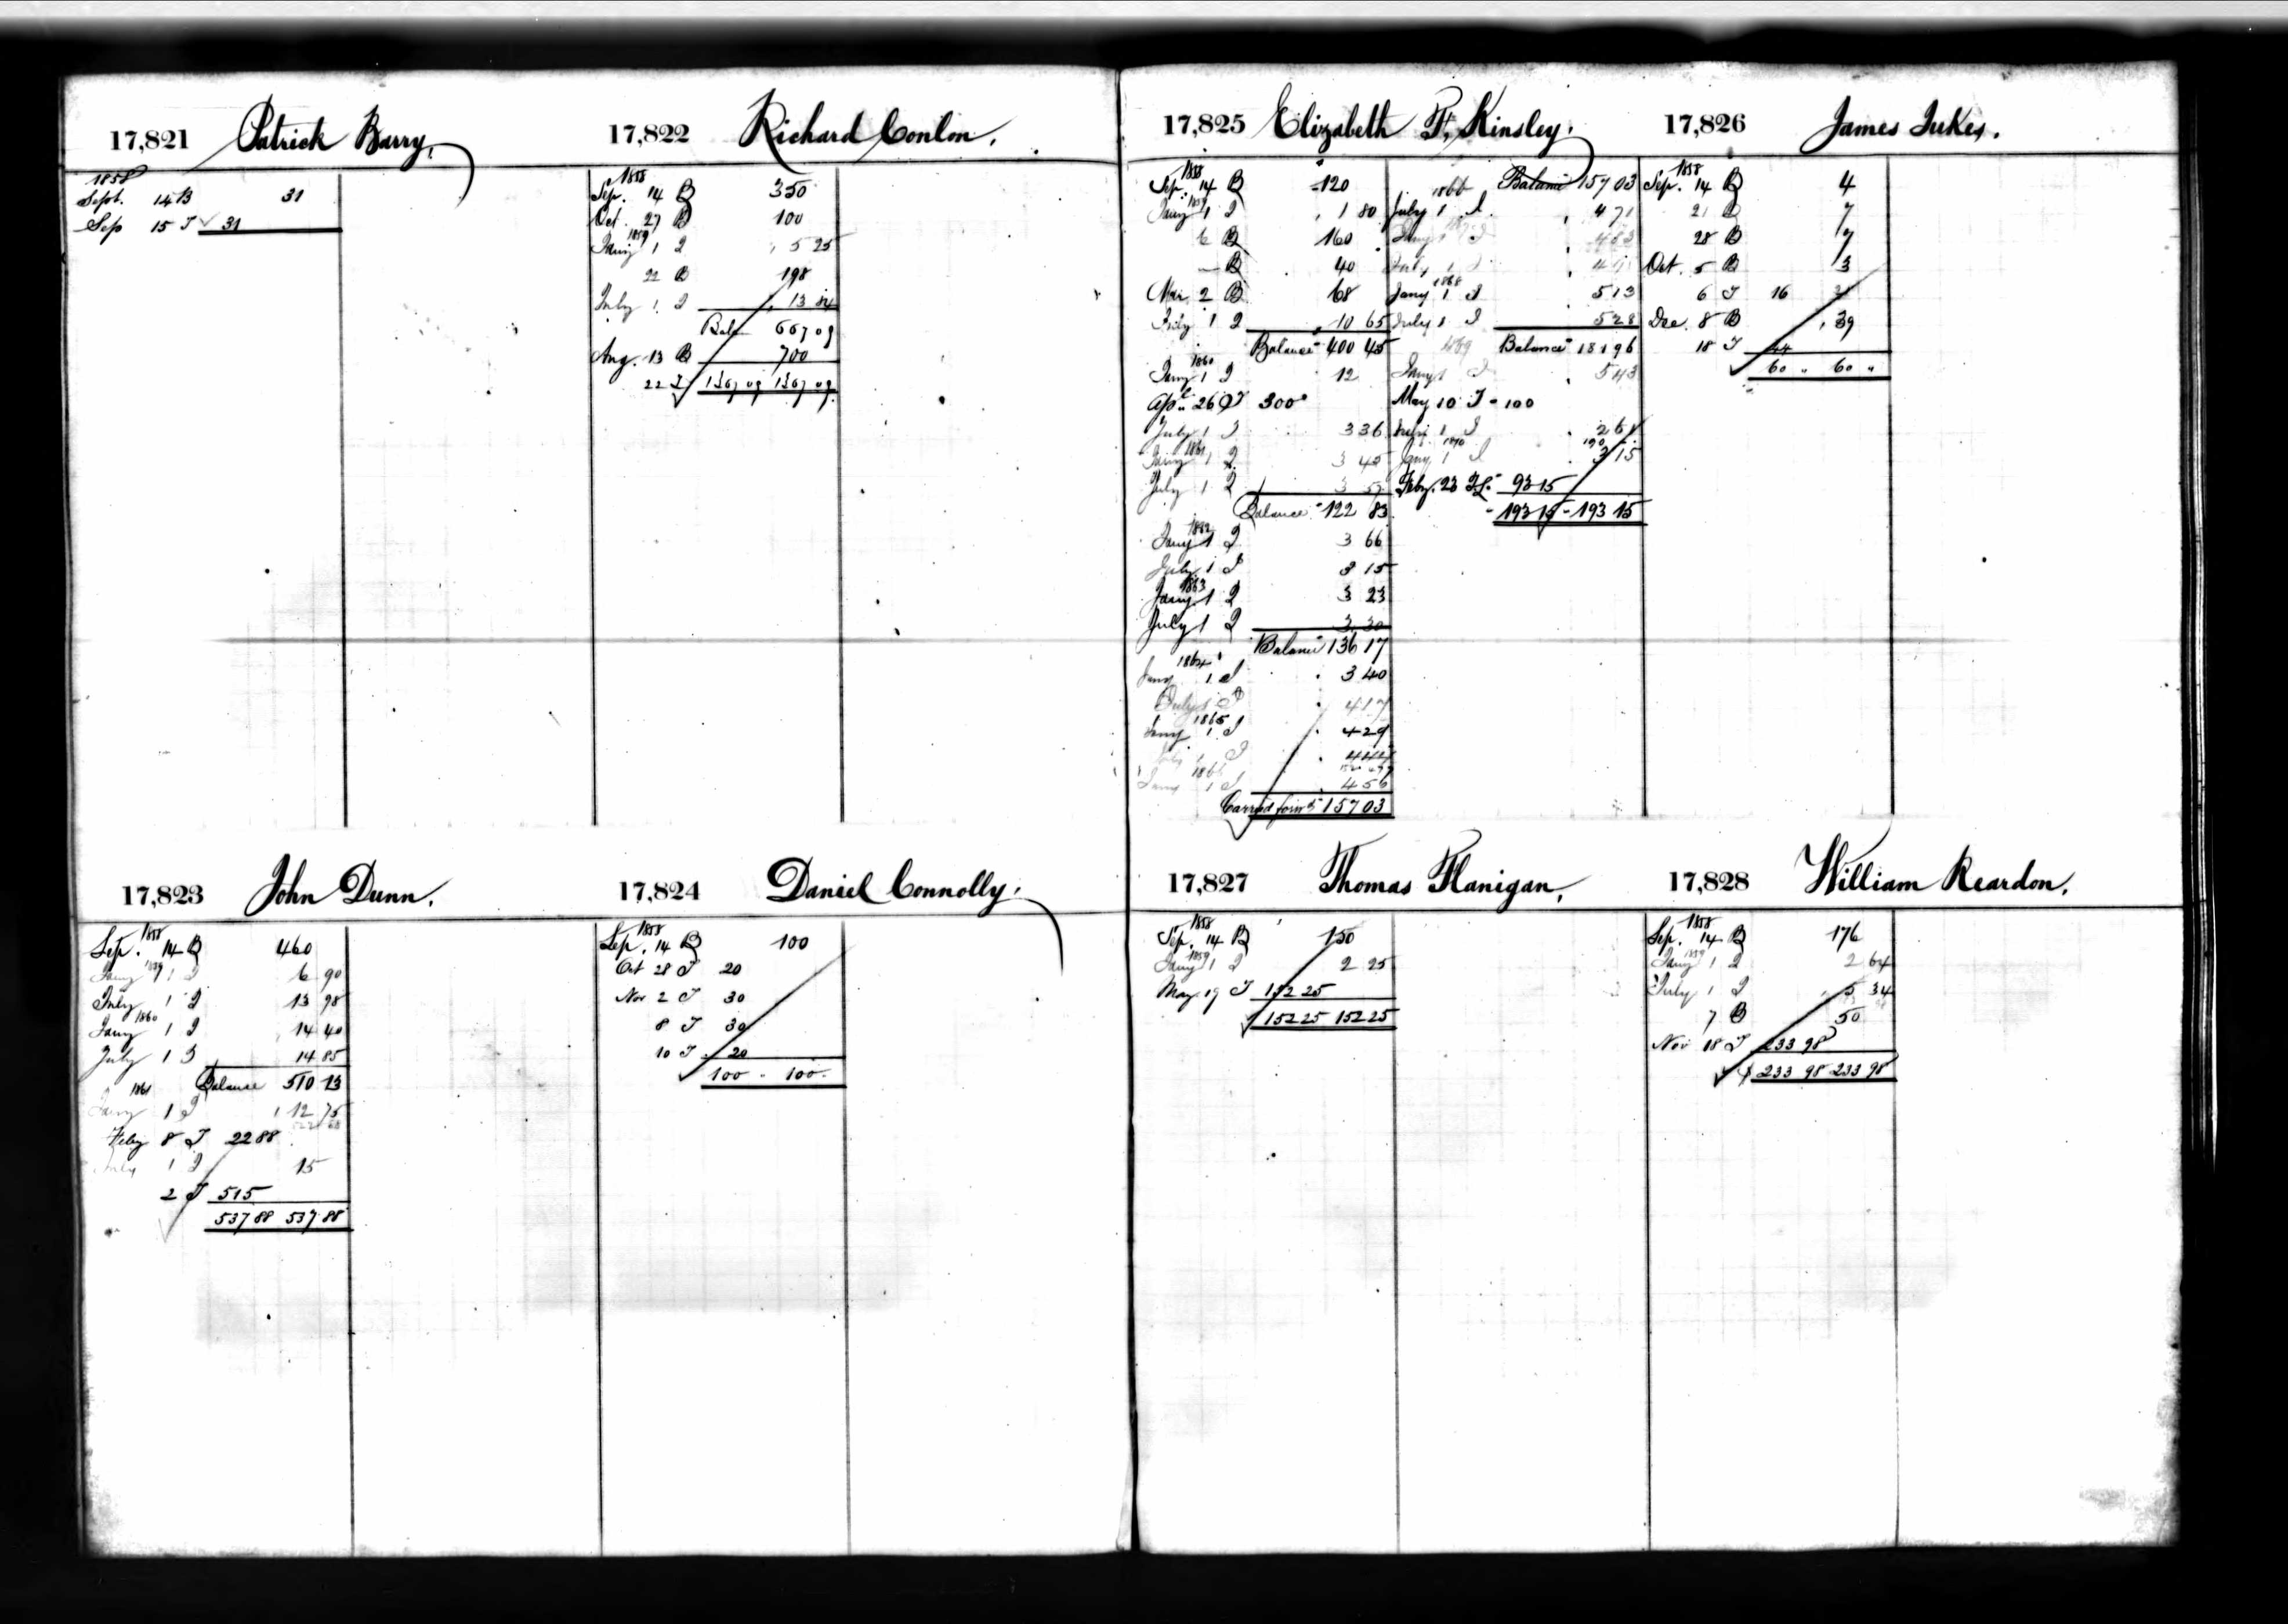 17,821 Patrick Barry.
1858
Sept. 14 B 31
Sep 15 T 31
17,822 Richard Conlon.
1858
Sep. 14 B 350
Oct. 27 B 100
1859
Jany 1 I 5 25
22 B 198
July 1 I 13 84
Bal 667 09
Aug. 13 B 700
22 T 1367 09 1367 09
17,823 John Dunn.
1858
Sep. 14 B 460
1859
Jany 1 I 6 90
July 1 I 13 98
1860
Jany 1 I 14 40
July 1 I 14 85
Balance 510 13
1861
Jany 1 I 12 75
Feby 8 T 22 88
July 1 I 15
2 T 515
537 88 537 88
17,824 Daniel Connolly.
1858
Sep. 14 B 100
Oct 28 T 20
Nov 2 T 30
8 T 30
10 T 20
100 - 100 -
17,825 Elizabeth F. Kinsley.
1858
Sep. 14 B 120
1859
Jany 1 I 1 80
6 B 160
— B 40
Mar. 2 B 68
July 1 I 10 65
Balance 400 45
1860
Jany 1 I 12
Apl. 26 T 300
July 1 I 3 36
1861
Jany 1 I 3 45
July 1 I 3 57
Balance 122 83
1862
Jany 1 I 3 66
July 1 I 3 15
1863
Jany 1 I 3 23
July 1 I 3 30
Balance 136 17
1864
Jany 1 I 3 40
July 1 I 4 17
1865
Jany 1 I 4 29
July 1 I 4 44
1866
Jany 1 I 4 56
Carried forwd 157 03
Balance 157 03
1866
July 1 I 4 71
Jany 1 I 4 83
July 1 I
1868
Jany 1 I 5 13
July 1 I 5 28
Balance 181 96
1869
Jany 1 I 5 43
May 10 T 100
July 1 I 2 61
1870
Jany 1 I 3 15
Feby. 23 T 93 15
193 15 - 193 15
17,826 James Jukes.
1858
Sep. 14 B 4
21 B 7
28 B 7
Oct. 5 B 3
6 T 16
Dec. 8 B 39
18 T 44
60 " 60 "
17,827 Thomas Flanigan.
1858
Sep. 14 B 150
1859
Jany 1 I 2 25
May 19 T 152 25
152 25 152 25
17,828 William Reardon.
1858
Sep. 14 B 176
1859
Jany 1 I 2 64
July 1 I 5 34
7 B 50
Nov 18 T 233 98
$ 233 98 233 98